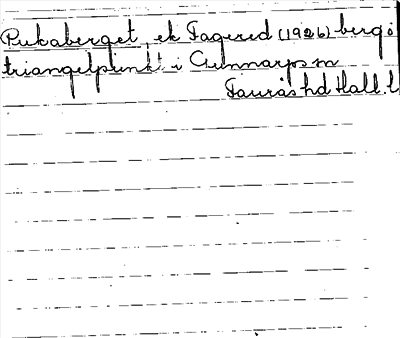 Pukaberget, ek Fagered (1926) berg o
triangelpunkt i Gunnarps sn
Faurås hd Hall. l